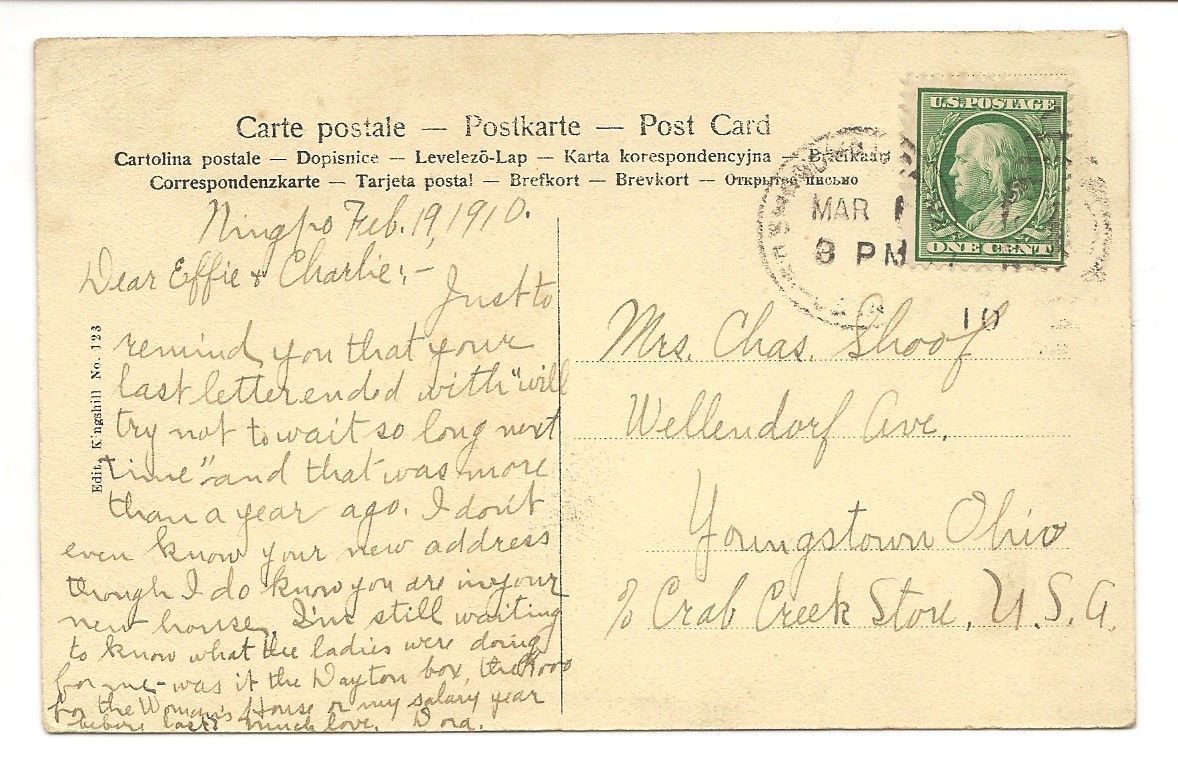 Carte postale — Postkarte — Post Card
Cartolina postale — Dopisnice — Levelező-Lap — Karta korespondencyjna — Briefkaart
Correspondenzkarte — Tarjeta postal — Brefkort — Brevkort — Открытое письмо
U.S. POSTAGE
ONE CENT
MAR
8 PM
10
Ningpo Feb. 19, 1910.
Dear Effie & Charlie:-
Just to
remind you that your
last letter ended with "will
try not to wait so long next
time" and that was more
than a year ago. I don't
even know your new address
though I do know you are in your
new house. I'm still waiting
to know what the ladies were doing
for me - was it the Dayton box, the
for the Woman's House or my salary year
before last? Much love. Dora.
Edit. Kingshill No. 123
Mrs. Chas. Shoof
Wellendorf Ave.
Youngstown Ohio
% Crab Creek Store, U.S.A.